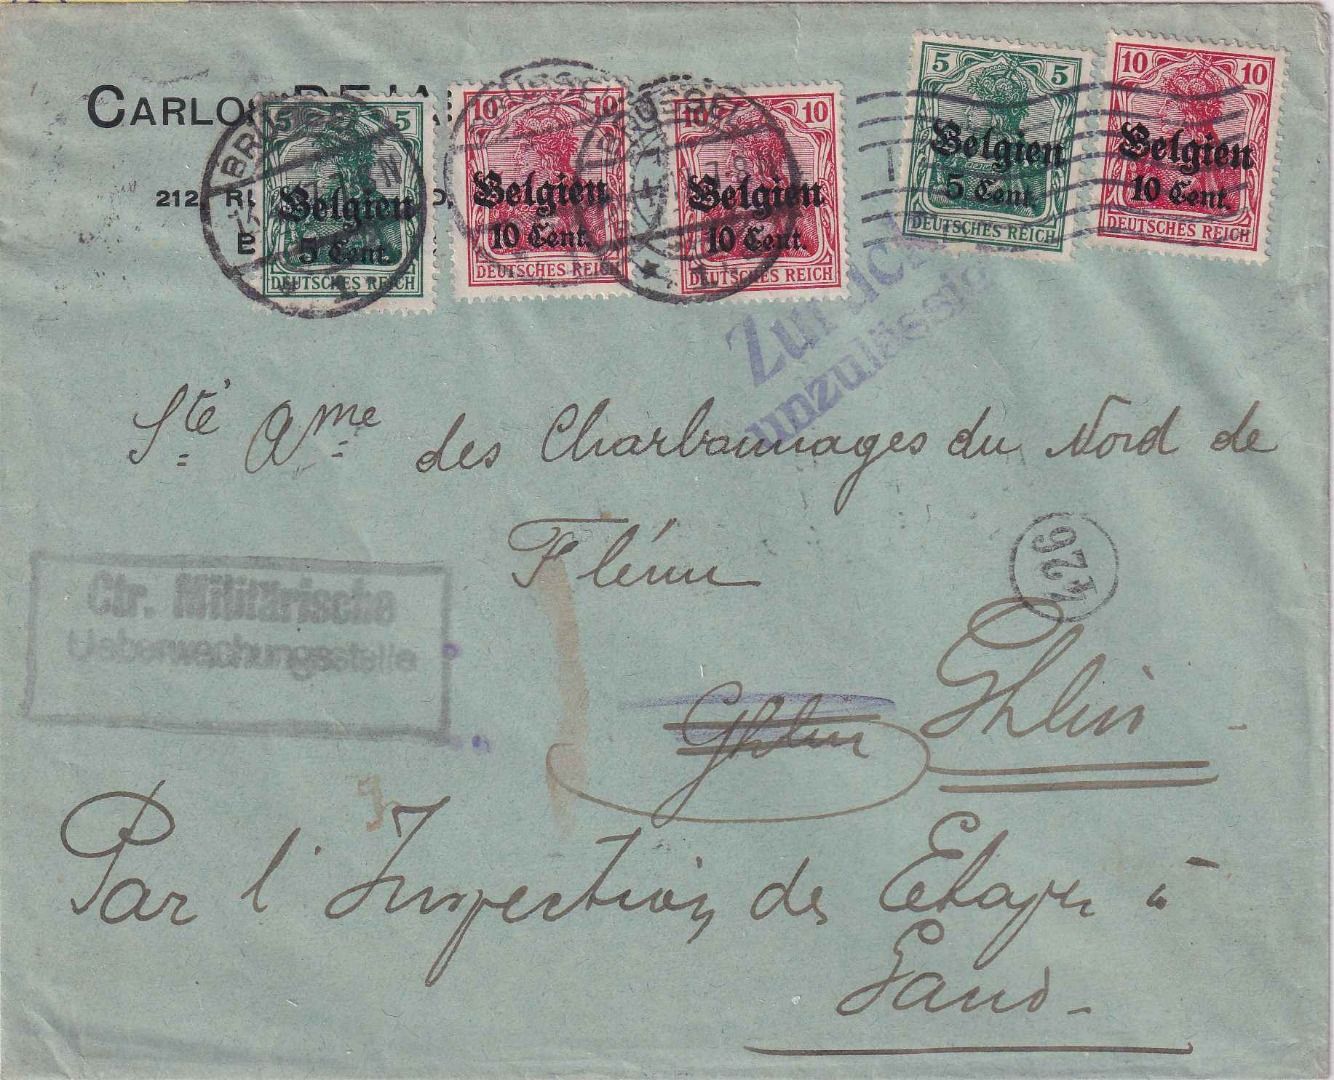 CARLOS
212
BRÜSSEL
5 5
Belgien
5 Cent.
DEUTSCHES REICH
10 10
Belgien
10 Cent.
DEUTSCHES REICH
BRÜSSEL
10 10
Belgien
10 Cent.
DEUTSCHES REICH
5 5
Belgien
5 Cent.
DEUTSCHES REICH
10 10
Belgien
10 Cent.
DEUTSCHES REICH
Zurück
unzulässig
Sté Ame des Charbonnages du Nord de
Flénu
Ctr. Militärische
Ueberwachungsstelle
Ghlin
Ghlin
Par l'Inspection des Etapes à
Gand